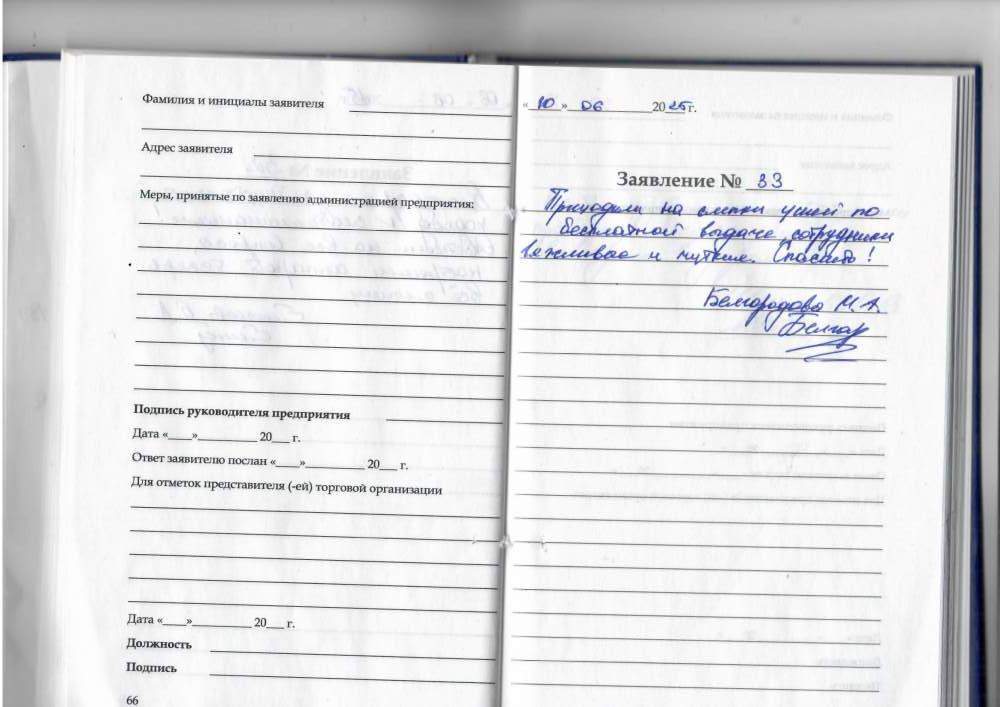 Фамилия и инициалы заявителя
Адрес заявителя
Меры, принятые по заявлению администрацией предприятия:
Подпись руководителя предприятия
Дата «____»__________ 20___ г.
Ответ заявителю послан «____»__________ 20___ г.
Для отметок представителя (-ей) торговой организации
Дата «____»__________ 20___ г.
Должность
Подпись
66
«10» 06 2025 г.
Заявление № 33
Приходили на слепки ушей по
бесплатной выдаче, сотрудники
вежливые и чуткие. Спасибо!
Белгородова М.